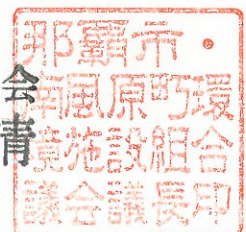 那覇市・
南風原町環
境施設組合
議会議長印
会青